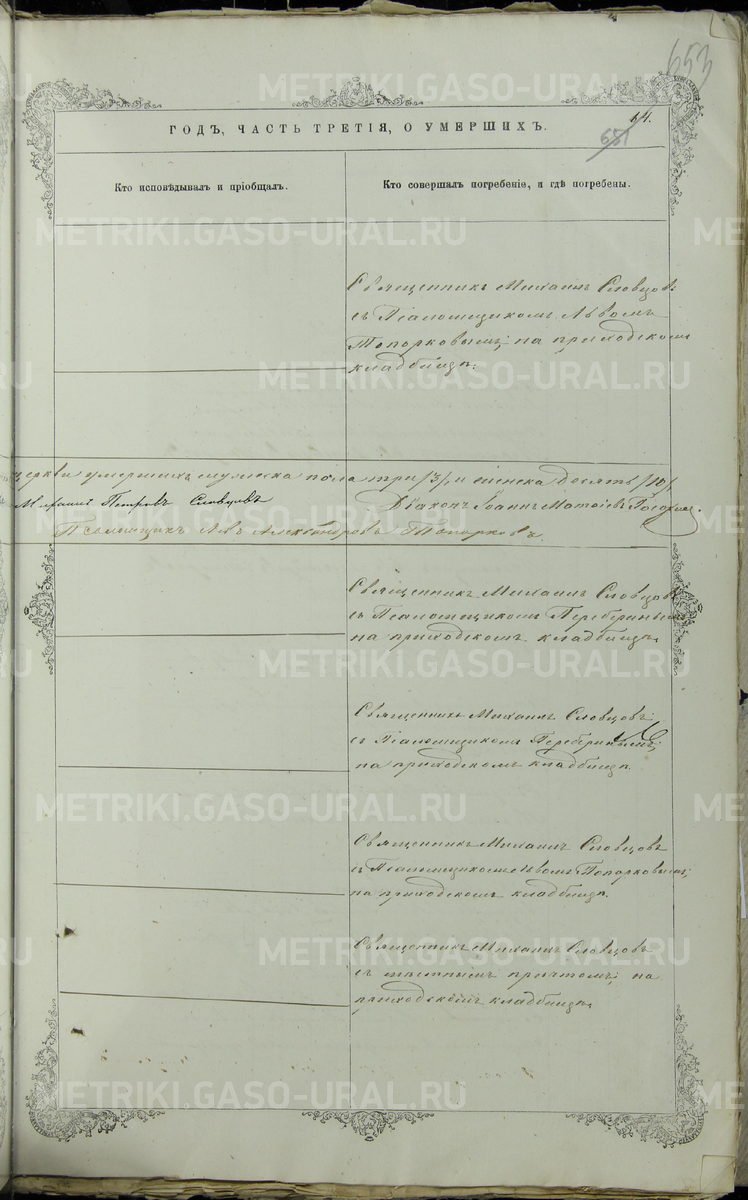 653
64.
651
ГОДЪ, ЧАСТЬ ТРЕТІЯ, О УМЕРШИХЪ.
Кто исповѣдывалъ и пріобщалъ.
Кто совершалъ погребеніе, и гдѣ погребены.
Священникъ Михаилъ Словцовъ
съ Псаломщикомъ Львомъ
Топорковымъ; на приходскомъ
кладбищѣ.
церкви умершихъ мужеска пола три /3/, и женска десять /10/
Михаилъ Петровъ Словцовъ Діаконъ Іоаннъ Матѳіевъ
Псаломщикъ Левъ Александровъ Топорковъ.
Священникъ Михаилъ Словцовъ
съ Псаломщикомъ Переберинымъ
на приходскомъ кладбищѣ.
Священникъ Михаилъ Словцовъ
съ Псаломщикомъ Переберинымъ;
на приходскомъ кладбищѣ.
Священникъ Михаилъ Словцовъ
съ Псаломщикомъ Львомъ Топорковымъ;
на приходскомъ кладбищѣ.
Священникъ Михаилъ Словцовъ
съ мѣстнымъ причтомъ; на
приходскомъ кладбищѣ.
METRIKI.GASO-URAL.RU